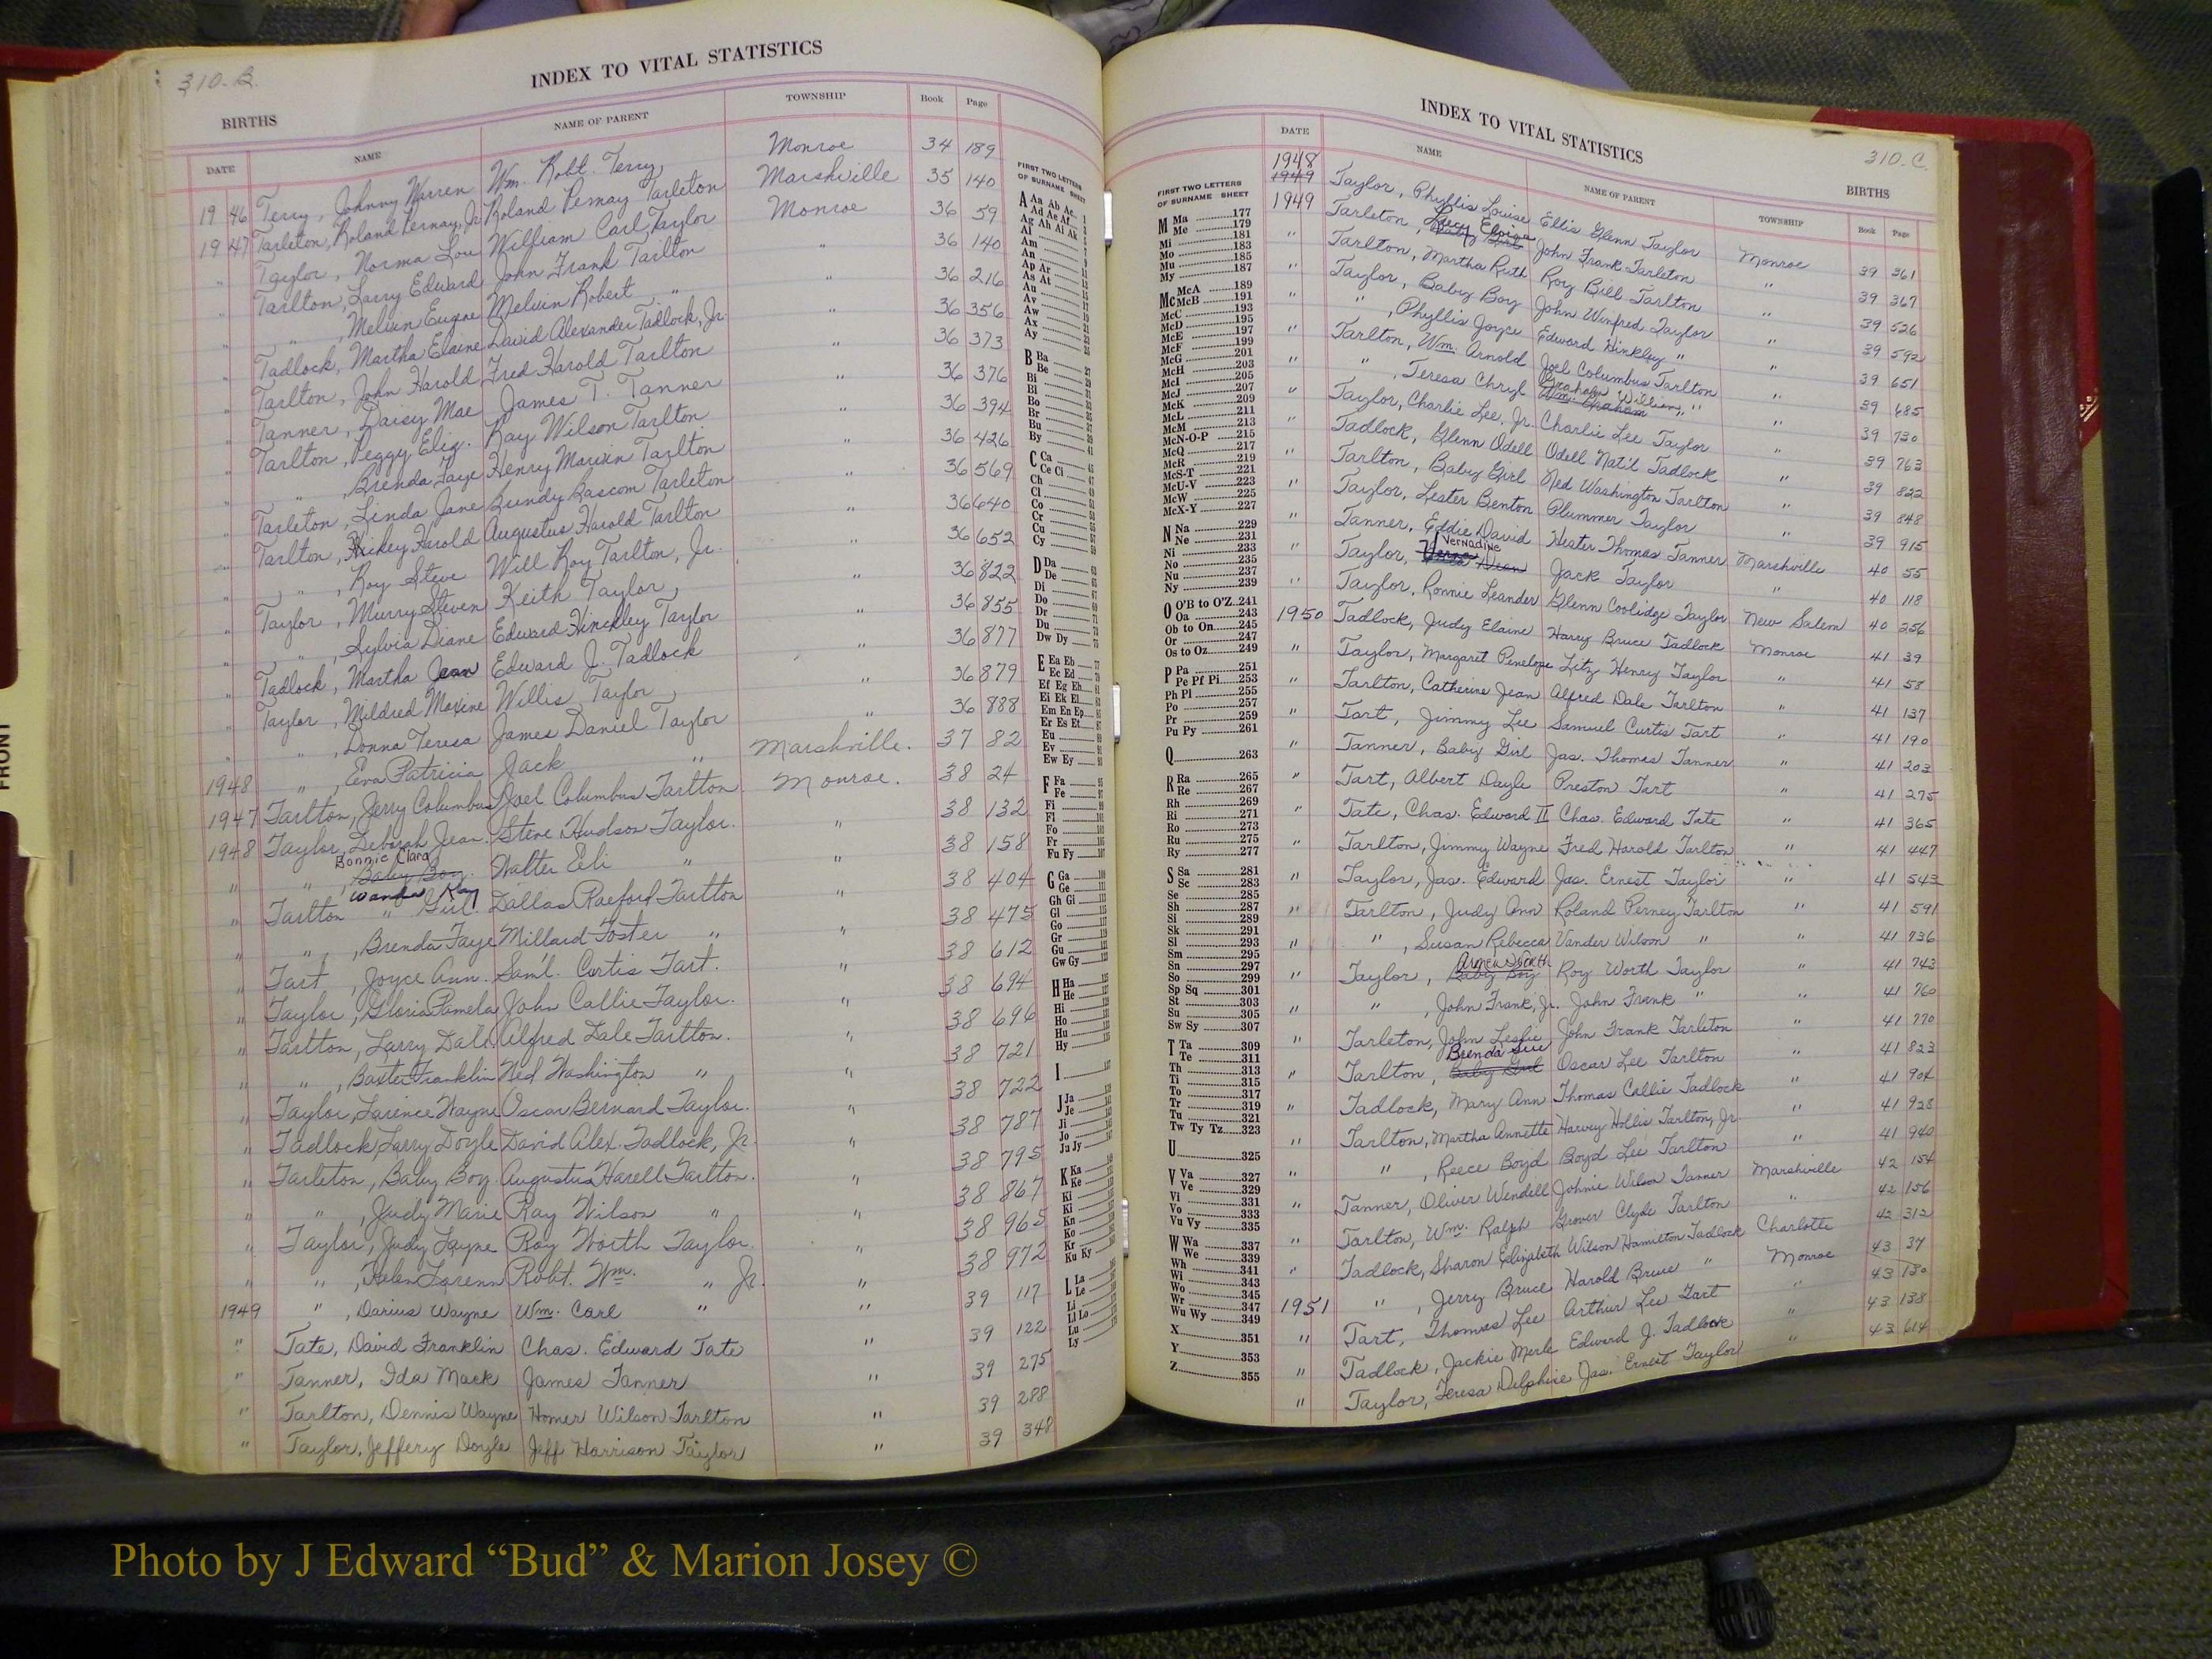 310-B.
INDEX TO VITAL STATISTICS
BIRTHS
DATE NAME NAME OF PARENT TOWNSHIP Book Page
1946 Terry, Johnny Warren Wm. Robt. Terry Monroe 34 189
1947 Tarleton, Roland Pernay, Jr. Roland Pernay Tarleton Marshville 35 140
" Taylor, Norma Lou William Carl Taylor Monroe 36 59
" Tarlton, Larry Edward John Frank Tarlton " 36 140
" " , Melvin Eugene Melvin Robert " " 36 216
" Tadlock, Martha Elaine David Alexander Tadlock, Jr. " 36 356
" Tarlton, John Harold Fred Harold Tarlton " 36 373
" Tanner, Daisy Mae James T. Tanner " 36 376
" Tarlton, Peggy Eliz. Ray Wilson Tarlton " 36 394
" " , Brenda Faye Henry Marvin Tarlton " 36 426
" Tarleton, Linda Jane Bundy Bascom Tarleton " 36 569
" Tarlton, Harold Augustus Harold Tarlton " 36 640
" " , Roy Steve Will Roy Tarlton, Jr. " 36 652
" Taylor, Murry Steven Keith Taylor " 36 822
" " , Sylvia Diane Edward Hinckley Taylor " 36 855
" Tadlock, Martha Jean Edward J. Tadlock " 36 877
" Taylor, Mildred Maxine Willis Taylor " 36 879
" " , Donna Teresa James Daniel Taylor " 36 888
1948 " , Eva Patricia Jack " Marshville. 37 82
1947 Tarlton, Jerry Columbus Joel Columbus Tarlton Monroe. 38 24
1948 Taylor, Deborah Jean. Steve Hudson Taylor. " 38 132
Bonnie Clara
" " , Baby Boy. Walter Eli " " 38 158
Wanda Kay
" Tarlton " Girl. Dallas Raeford Tarlton " 38 404
" " , Brenda Faye Millard Foster " " 38 475
" Tart, Joyce Ann. Sam'l. Curtis Tart. " 38 612
" Taylor, Gloria Pamela John Callie Taylor. " 38 694
" Tarlton, Larry Dale Alfred Dale Tarlton. " 38 696
" " , Baxter Franklin Ned Washington " " 38 721
" Taylor, Larence Wayne Oscar Bernard Taylor. " 38 722
" Tadlock, Larry Doyle David Alex. Tadlock, Jr. " 38 787
" Tarleton, Baby Boy Augustus Harell Tarlton. " 38 795
" " , Judy Marie Ray Wilson " " 38 867
" Taylor, Judy Layne Roy Worth Taylor. " 38 965
" " , Robt. Wm. " Jr. " 38 972
1949 " , Darius Wayne Wm. Carl " " 39 117
" Tate, David Franklin Chas. Edward Tate " 39 122
" Tanner, Ida Mack James Tanner " 39 275
" Tarlton, Dennis Wayne Homer Wilson Tarlton " 39 288
" Taylor, Jeffery Doyle Jeff Harrison Taylor " 39 348
FIRST TWO LETTERS
OF SURNAME SHEET
A Aa Ab Ac
Ad Ae Af
Ag Ah Ai Ak
Al
Am
An
Ap Ar
As At
Au
Av
Aw
Ax
Ay
B Ba
Be
Bi
Bl
Bo
Br
Bu
By
C Ca
Ce Ci
Ch
Cl
Co
Cr
Cu
Cy
D Da
De
Di
Do
Dr
Du
Dw Dy
E Ea Eb
Ec Ed
Ef Eg Eh
Ei Ek El
Em En Ep
Er Es Et
Eu
Ev
Ew Ey
F Fa
Fe
Fi
Fl
Fo
Fr
Fu Fy
G Ga
Ge
Gh Gi
Gl
Go
Gr
Gu
Gw Gy
H Ha
He
Hi
Ho
Hu
Hy
I
J Ja
Je
Ji
Jo
Ju Jy
K Ka
Ke
Ki
Kl
Kn
Ko
Kr
Ku Ky
L La
Le
Li
Ll Lo
Lu
Ly
INDEX TO VITAL STATISTICS
310-C.
BIRTHS
DATE NAME NAME OF PARENT TOWNSHIP Book Page
1948
1949 Taylor, Phyllis Louise Ellis Glenn Taylor Monroe 39 361
Lucy Eloise
1949 Tarleton, Baby Girl John Frank Tarleton " 39 367
" Tarlton, Martha Ruth Roy Bill Tarlton " 39 526
" Taylor, Baby Boy John Winfred Taylor " 39 592
" " , Phyllis Joyce Edward Hinkley " " 39 651
" Tarlton, Wm. Arnold Joel Columbus Tarlton " 39 685
Graham William
" " , Teresa Chryl Wm. Graham " " 39 730
" Taylor, Charlie Lee, Jr. Charlie Lee Taylor " 39 763
" Tadlock, Glenn Odell Odell Nat'l Tadlock " 39 822
" Tarlton, Baby Girl Ned Washington Tarlton " 39 848
" Taylor, Lester Benton Plummer Taylor " 39 915
" Tanner, Eddie David Hester Thomas Tanner Marshville 40 55
Vernadine
" Taylor, Jack Taylor " 40 118
" Taylor, Ronnie Leander Glenn Coolidge Taylor New Salem 40 256
1950 Tadlock, Judy Elaine Harry Bruce Tadlock Monroe 41 39
" Taylor, Margaret Penelope Litz Henry Taylor " 41 58
" Tarlton, Catherine Jean Alfred Dale Tarlton " 41 137
" Tart, Jimmy Lee Samuel Curtis Tart " 41 190
" Tanner, Baby Girl Jas. Thomas Tanner " 41 203
" Tart, Albert Dayle Preston Tart " 41 275
" Tate, Chas. Edward II Chas. Edward Tate " 41 365
" Tarlton, Jimmy Wayne Fred Harold Tarlton " 41 447
" Taylor, Jas. Edward Jas. Ernest Taylor " 41 543
" Tarlton, Judy Ann Roland Perney Tarlton " 41 591
" " , Susan Rebecca Vander Wilson " " 41 736
" Taylor, Baby Boy Roy Worth Taylor " 41 743
" " , John Frank, Jr. John Frank " " 41 760
" Tarleton, John Leslie John Frank Tarleton " 41 770
Brenda Sue
" Tarlton, Baby Girl Oscar Lee Tarlton " 41 823
" Tadlock, Mary Ann Thomas Callie Tadlock " 41 904
" Tarlton, Martha Annette Harvey Hollis Tarlton, Jr. " 41 928
" " , Reece Boyd Boyd Lee Tarlton " 41 940
" Tanner, Oliver Wendell Johnie Wilson Tanner Marshville 42 154
" Tarlton, Wm. Ralph Grover Clyde Tarlton " 42 156
" Tadlock, Sharon Elizabeth Wilson Hamilton Tadlock Charlotte 42 312
1951 " , Jerry Bruce Harold Bruce " Monroe 43 37
" Tart, Thomas Lee Arthur Lee Tart " 43 130
" Tadlock, Jackie Merle Edward J. Tadlock " 43 138
" Taylor, Teresa Delphine Jas. Ernest Taylor " 43 614
FIRST TWO LETTERS
OF SURNAME SHEET
M Ma 177
Me 179
Mi 181
Mo 183
Mu 185
My 187
Mc McA 189
McB 191
McC 193
McD 195
McE 197
McF 199
McG 201
McH 203
McI 205
McJ 207
McK 209
McL 211
McM 213
McN-O-P 215
McQ 217
McR 219
McS-T 221
McU-V 223
McW 225
McX-Y 227
N Na 229
Ne 231
Ni 233
No 235
Nu 237
Ny 239
O O'B to O'Z 241
Oa 243
Ob to On 245
Or 247
Os to Oz 249
P Pa 251
Pe Pf Pi 253
Ph Pl 255
Po 257
Pr 259
Pu Py 261
Q 263
R Ra 265
Re 267
Rh 269
Ri 271
Ro 273
Ru 275
Ry 277
S Sa 281
Sc 283
Se 285
Sh 287
Si 289
Sk 291
Sl 293
Sm 295
Sn 297
So 299
Sp Sq 301
St 303
Su 305
Sw Sy 307
T Ta 309
Te 311
Th 313
Ti 315
To 317
Tr 319
Tu 321
Tw Ty Tz 323
U 325
V Va 327
Ve 329
Vi 331
Vo 333
Vu Vy 335
W Wa 337
We 339
Wh 341
Wi 343
Wo 345
Wr 347
Wu Wy 349
X 351
Y 353
Z 355
FRONT
Photo by J Edward “Bud” & Marion Josey ©